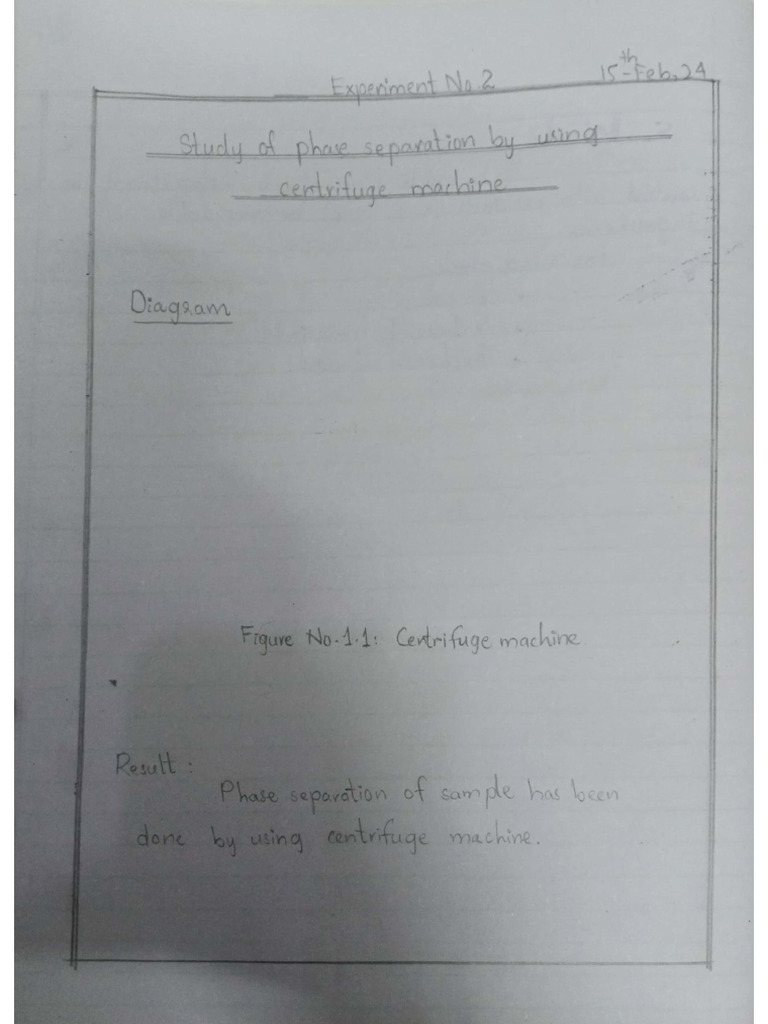 Experiment No.2
15th Feb, 24
Study of phase separation by using
centrifuge machine
Diagram
Figure No.1.1: Centrifuge machine
Result :
Phase separation of sample has been
done by using centrifuge machine.